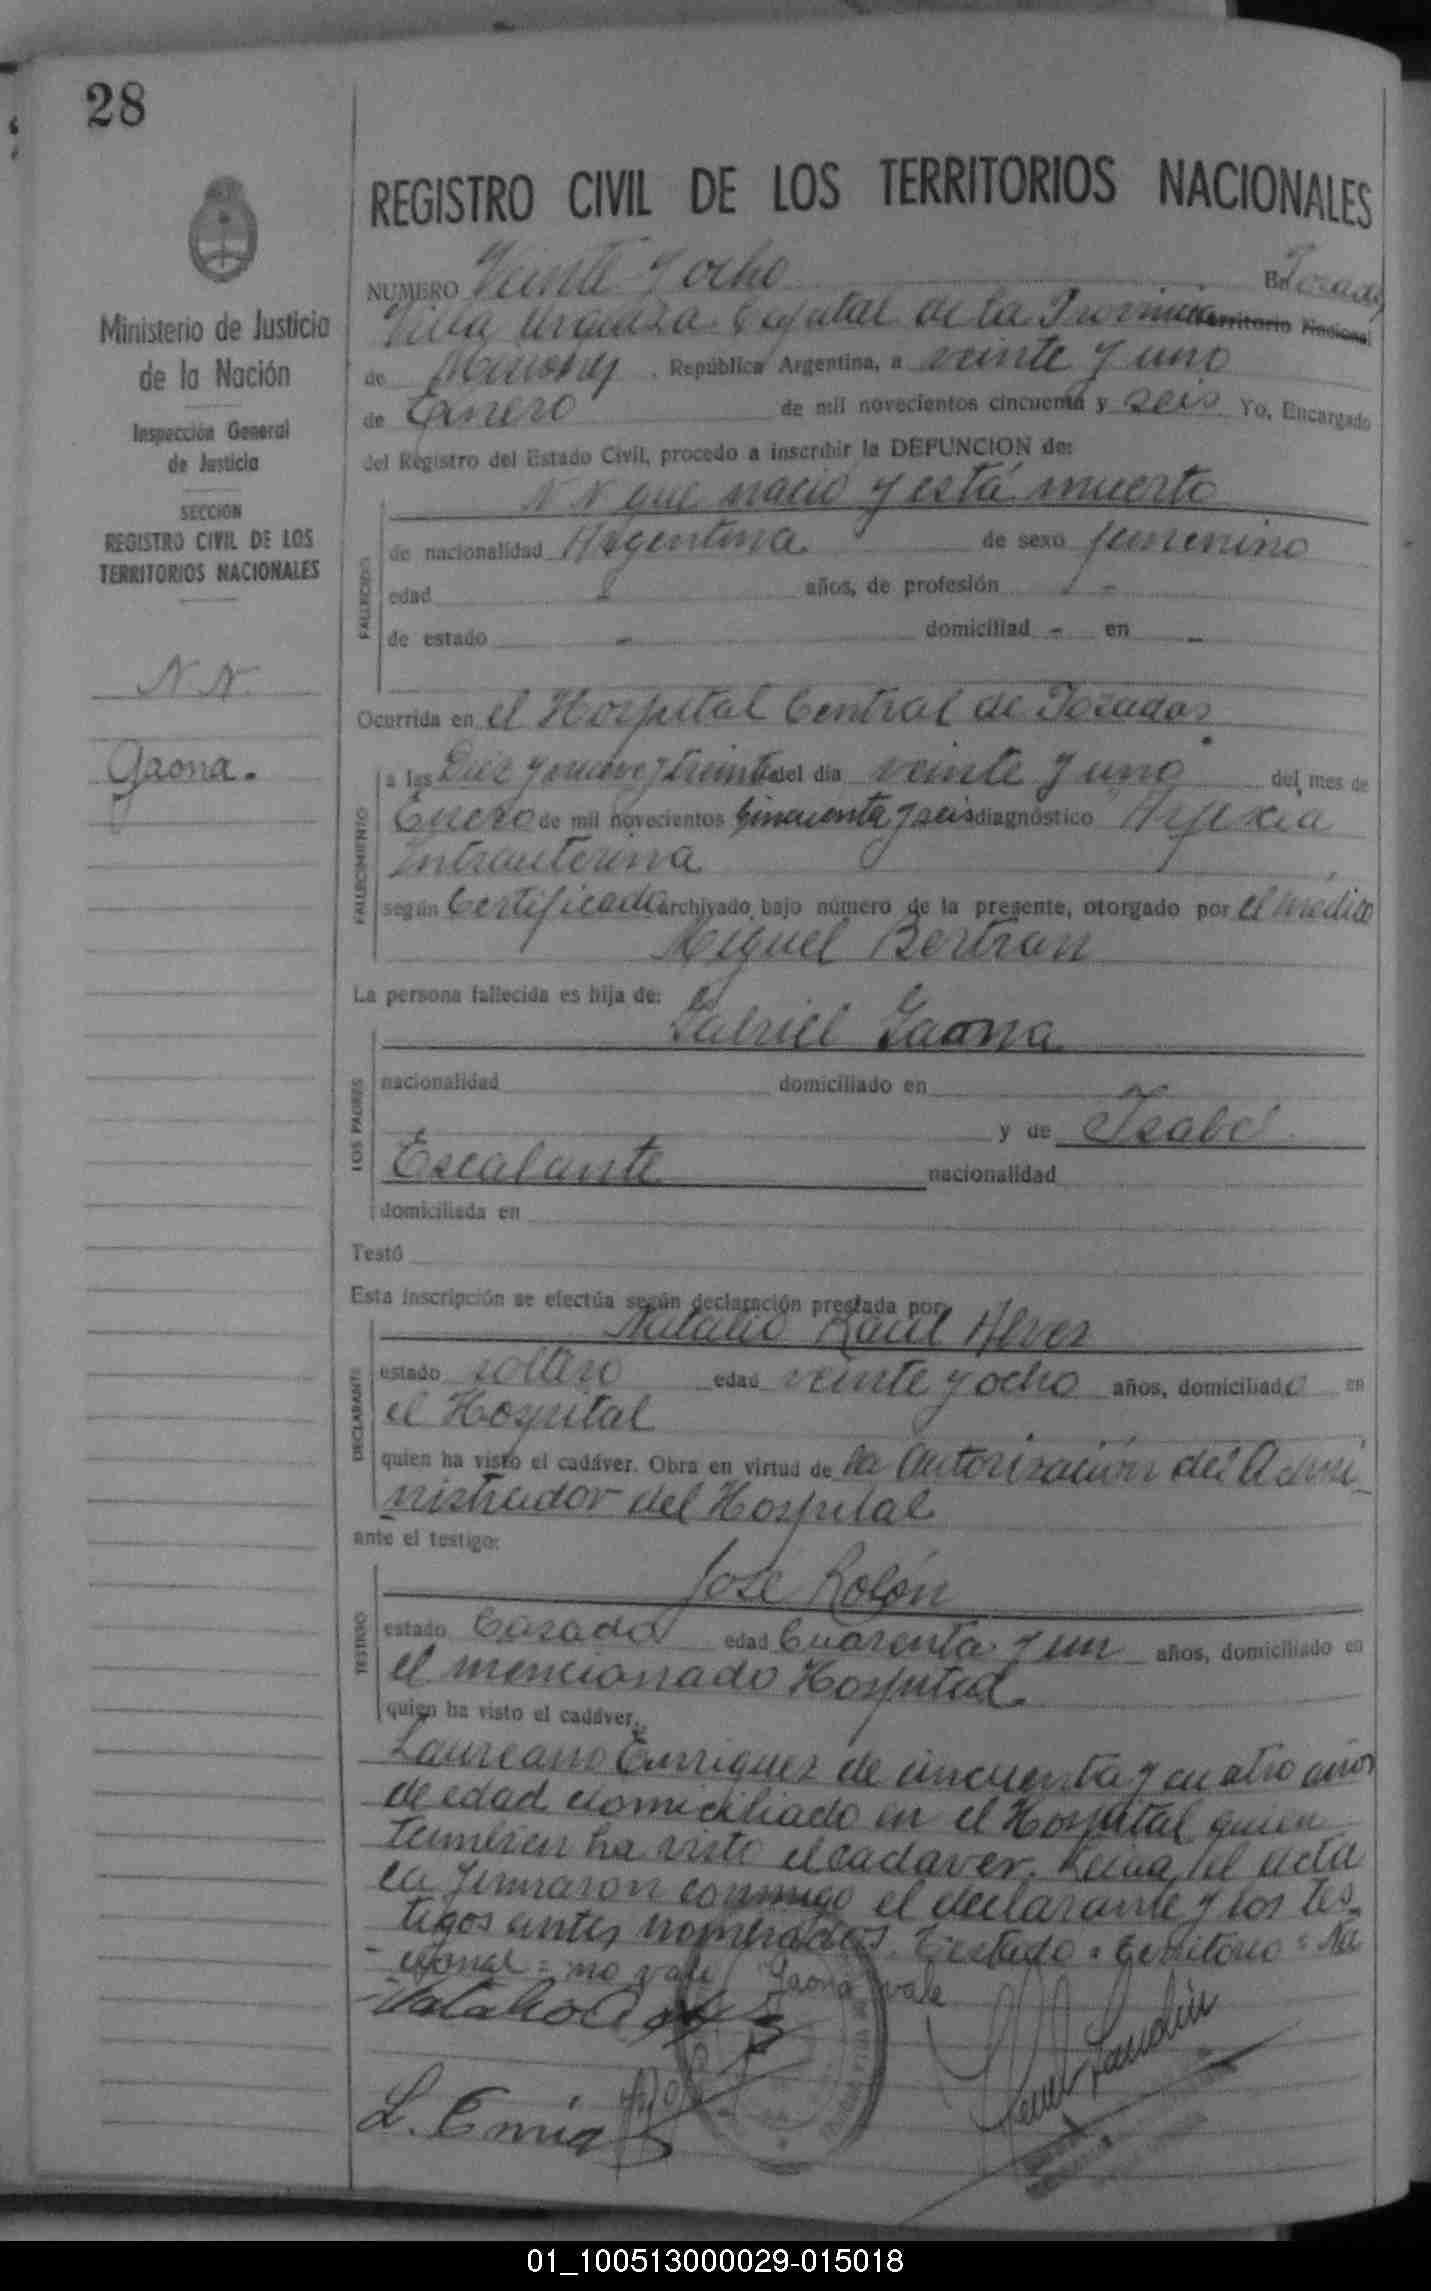 28
REGISTRO CIVIL DE LOS TERRITORIOS NACIONALES
Ministerio de Justicia
de la Nación
Inspección General
de Justicia
SECCION
REGISTRO CIVIL DE LOS
TERRITORIOS NACIONALES
N. N.
Gaona.
NUMERO Veinte y ocho En Posadas
Villa Urquiza Capital de la Provincia Territorio Nacional
de Misiones . República Argentina, a veinte y uno
de Enero de mil novecientos cincuenta y seis Yo, Encargado
del Registro del Estado Civil, procedo a inscribir la DEFUNCION de:
FALLECIDO
N N que nació y está muerto
de nacionalidad Argentina de sexo femenino
edad - años, de profesión -
de estado - domiciliad - en -
Ocurrida en el Hospital Central de Posadas
FALLECIMIENTO
a las Diez y nueve y treinta del día veinte y uno del mes de
Enero de mil novecientos Cincuenta y seis diagnóstico Asfixia
Intrauterina
según Certificado archivado bajo número de la presente, otorgado por el médico
Miguel Bertran
La persona fallecida es hija de:
LOS PADRES
Gabriel Gaona
nacionalidad domiciliado en
y de Isabel
Escalante nacionalidad
domiciliada en
Testó
Esta inscripción se efectúa según declaración prestada por
DECLARANTE
Natalio Raul Alvez
estado soltero edad veinte y ocho años, domiciliado en
el Hospital
quien ha visto el cadáver. Obra en virtud de la autorización del Admi
nistrador del Hospital
ante el testigo:
TESTIGO
José Rolón
estado Casado edad Cuarenta y un años, domiciliado en
el mencionado Hospital
quien ha visto el cadáver.
Laureano Enriquez de cincuenta y cuatro años
de edad domiciliado en el Hospital quien
tambien ha visto el cadaver. Leida el acta
la firmaron conmigo el declarante y los tes
tigos antes nombrados. Testado = Territorio = Na
cional = no vale Gaona vale
L. Enriq
01_100513000029-015018